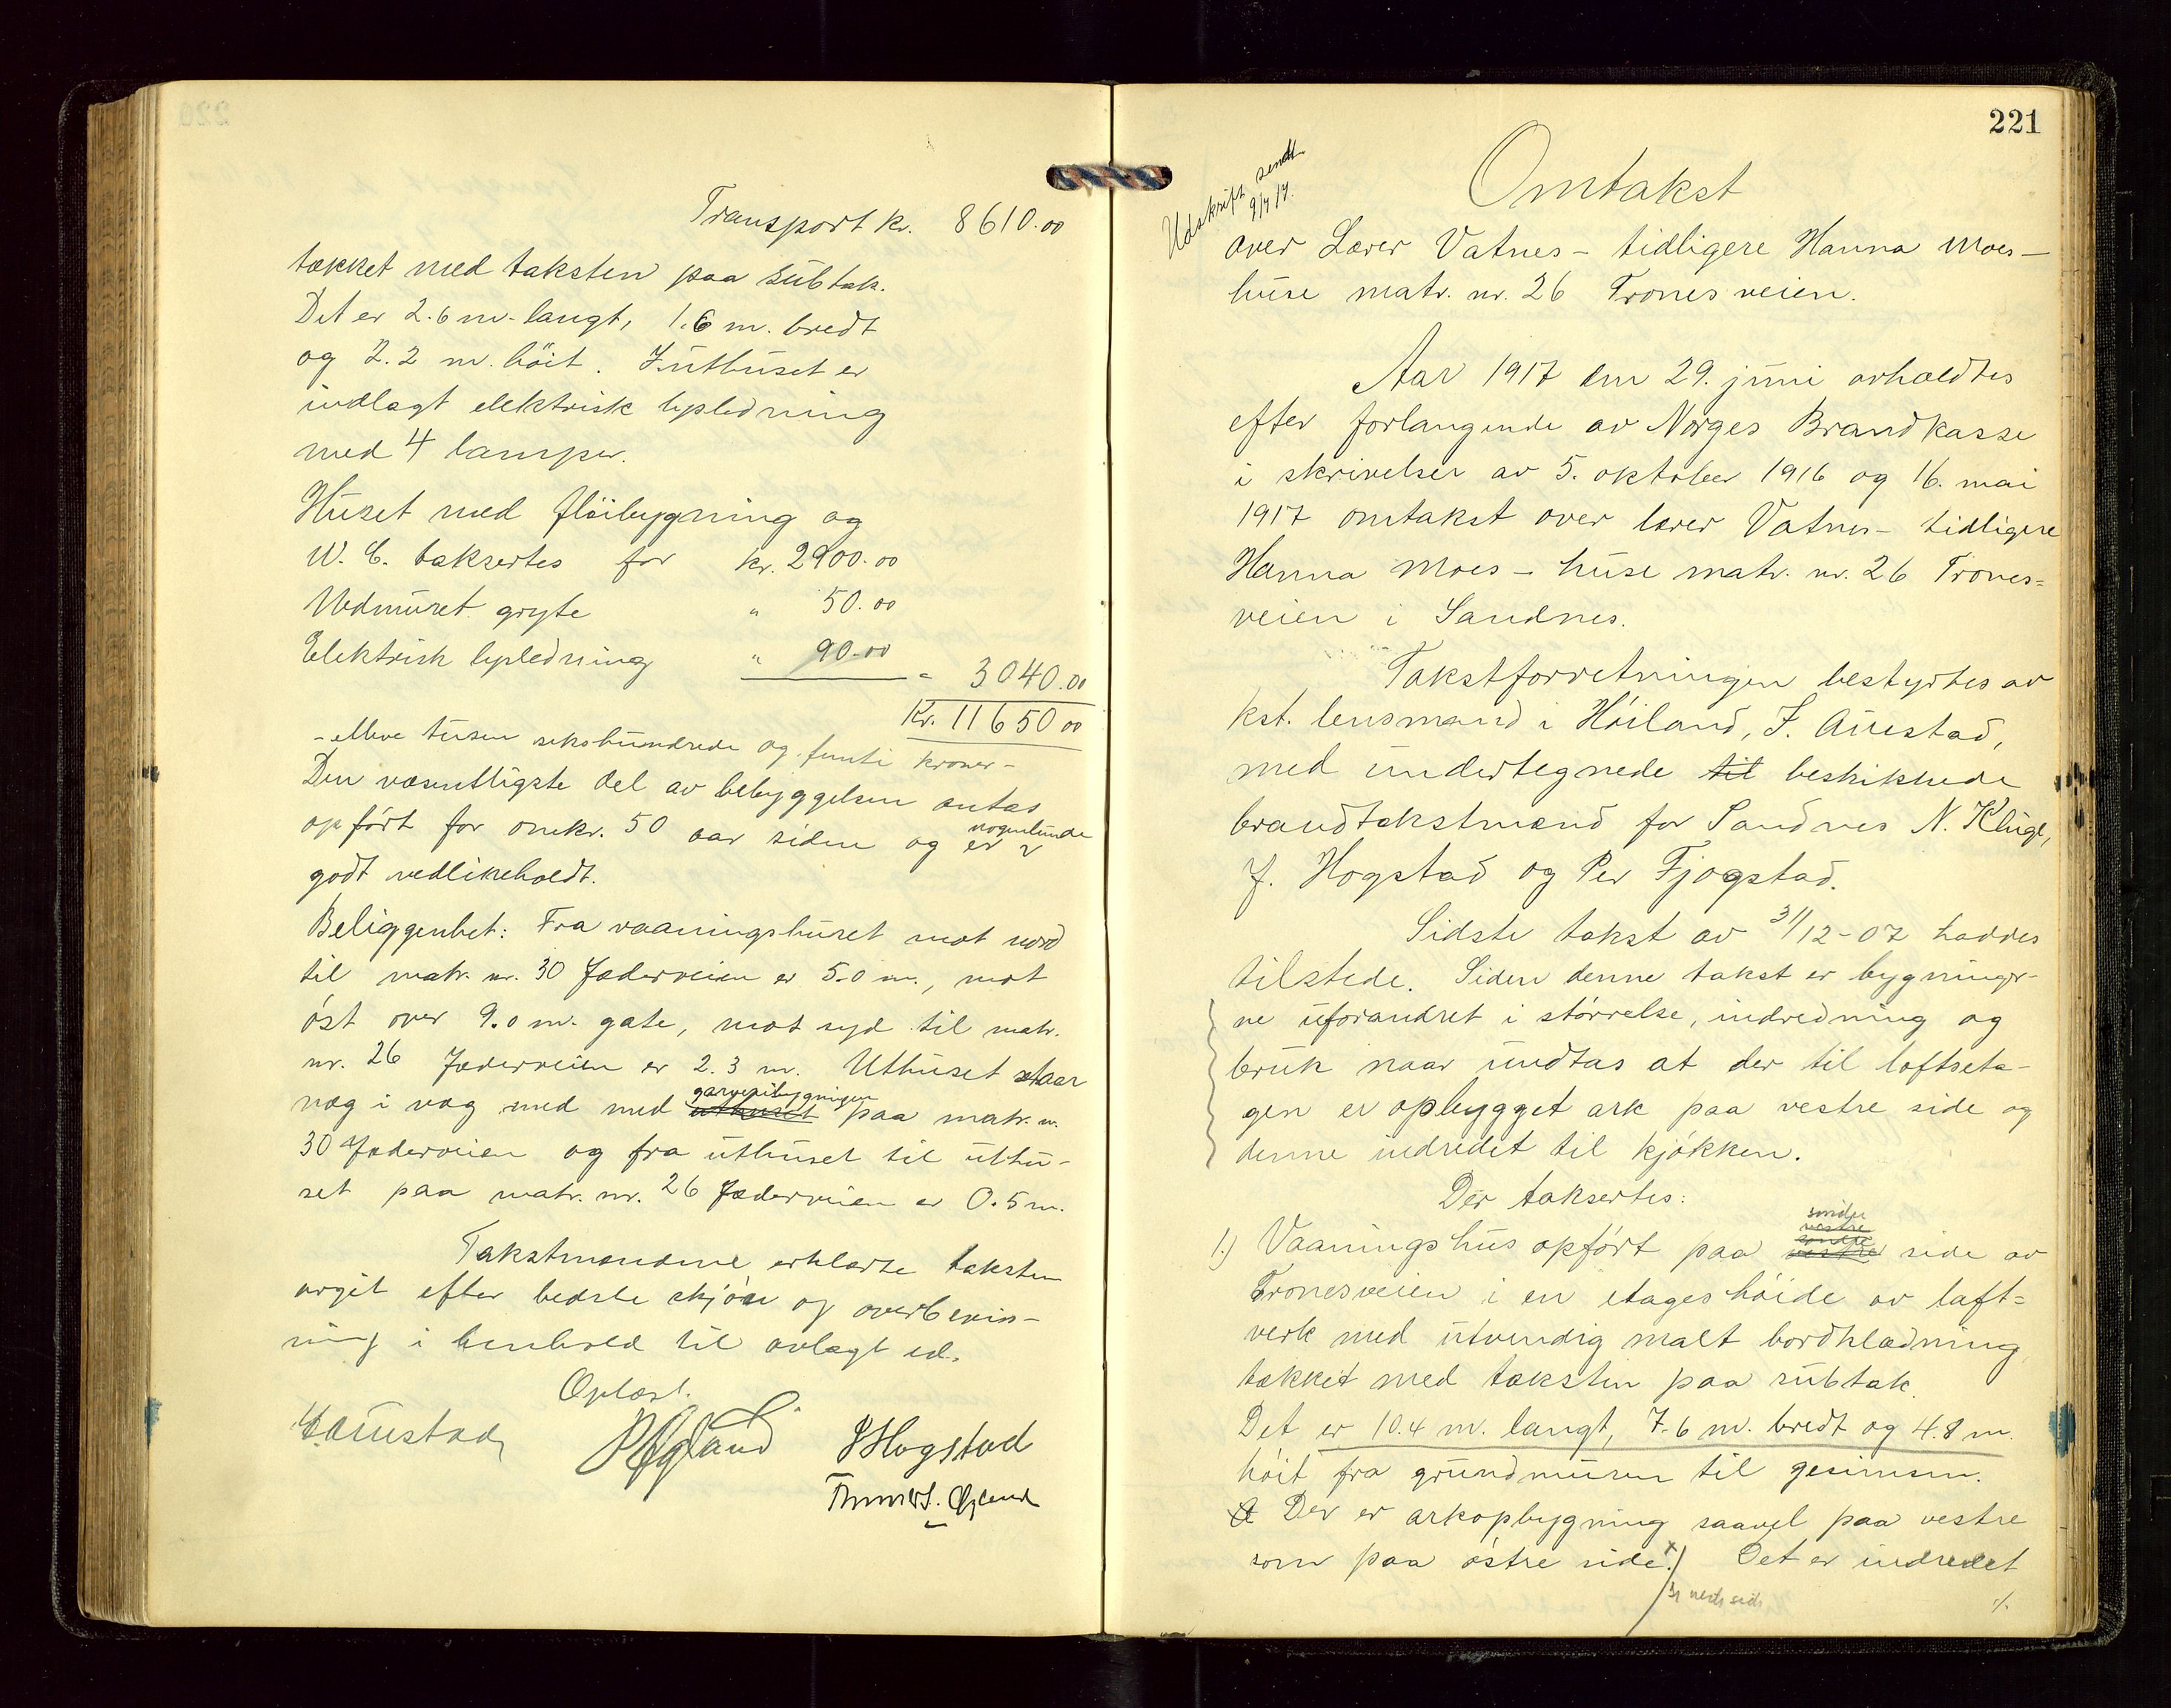 Transport kr. 8610.00
tækket med taksten paa subtak.
Det er 2.6 m. langt, 1.6 m. bredt
og 2.2 m. höit. I uthuset er
indlagt elektrisk lysledning
med 4 lamper.
Huset med flöibygning og
W. C. taksertes for kr. 2900.00
Indmuret gryte " 50.00
Elektrisk lysledning " 90.00
" 3040.00
Kr. 11650 00
- elleve tusen sekshundrede og femti kroner -
Den væsentligste del av bebyggelsen antas
opfört for omkr. 50 aar siden og er nogenlunde
godt vedlikeholdt.
Beliggenhet: Fra vaaningshuset mot nord
til matr. nr. 30 Jæderveien er 5.0 m., mot
öst over 9.0 m. gate, mot syd til matr.
nr. 26 Jæderveien er 2.3 m. Uthuset staar
væg i væg med med uthuset garveribygningen paa matr. nr.
30 Jæderveien og fra uthuset til uthu-
set paa matr. nr. 26 Jæderveien er 0.5 m.
Takstmændene erklærte taksten
avgit efter bedste skjön og overbevis-
ning i henhold til avlagt ed.
Oplæst.
Auestad
JHogstad
221
Udskrift sendt
9/7 17.
Omtakst
over Lærer Vatnes - tidligere Hanna Moes -
huse matr. nr. 26 Tronesveien.
Aar 1917 den 29. juni avholdtes
efter forlangende av Norges Brandkasse
i skrivelser av 5. oktober 1916 og 16. mai
1917 omtakst over lærer Vatnes - tidligere
Hanna Moes - huse matr. nr. 26 Trones=
veien i Sandnes.
Takstforretningen bestyrtes av
kst. lensmand i Höiland, J. Auestad,
med undertegnede til beskikkede
brandtakstmænd for Sandnes N. Kluge,
J. Hogstad og Per Fjogstad.
Sidste takst av 31/12-07 haddes
tilstede. Siden denne takst er bygninger-
ne uforandret i störrelse, indredning og
bruk naar undtas at der til loftseta-
gen er opbygget ark paa vestre side og
denne indredet til kjökken.
Der taksertes:
1.) Vaaningshus opfört paa vestre söndre vestre söndre side av
Tronesveien i en etages höide av laft=
verk med utvendig malt bordklædning
tækket med taksten paa subtak.
Det er 10.4 m. langt, 7.6 m. bredt og 4.8 m.
höit fra grundmuren til gesimsen.
Der er arkopbygning saavel paa vestre
som paa östre side. x) Det er indredet
./.